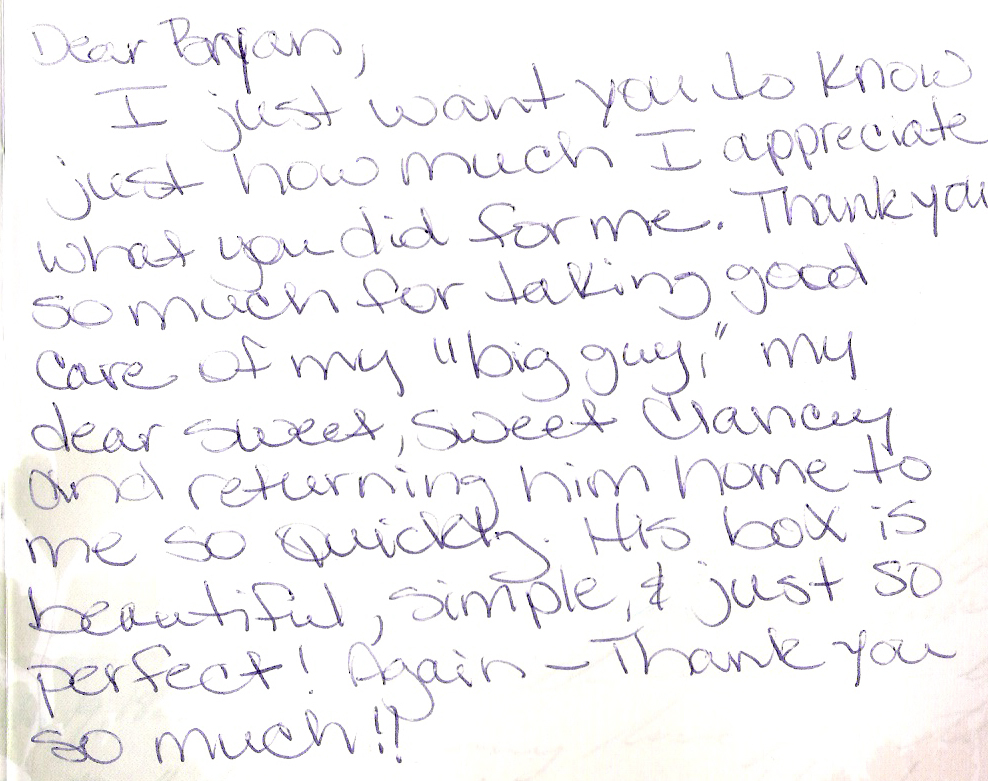 Dear Bryan,
I just want you to know
just how much I appreciate
what you did for me. Thank you
so much for taking good
care of my "big guy," my
dear sweet, sweet Clancy
and returning him home to
me so quickly. His box is
beautiful, simple, & just so
perfect! Again - Thank you
so much!!